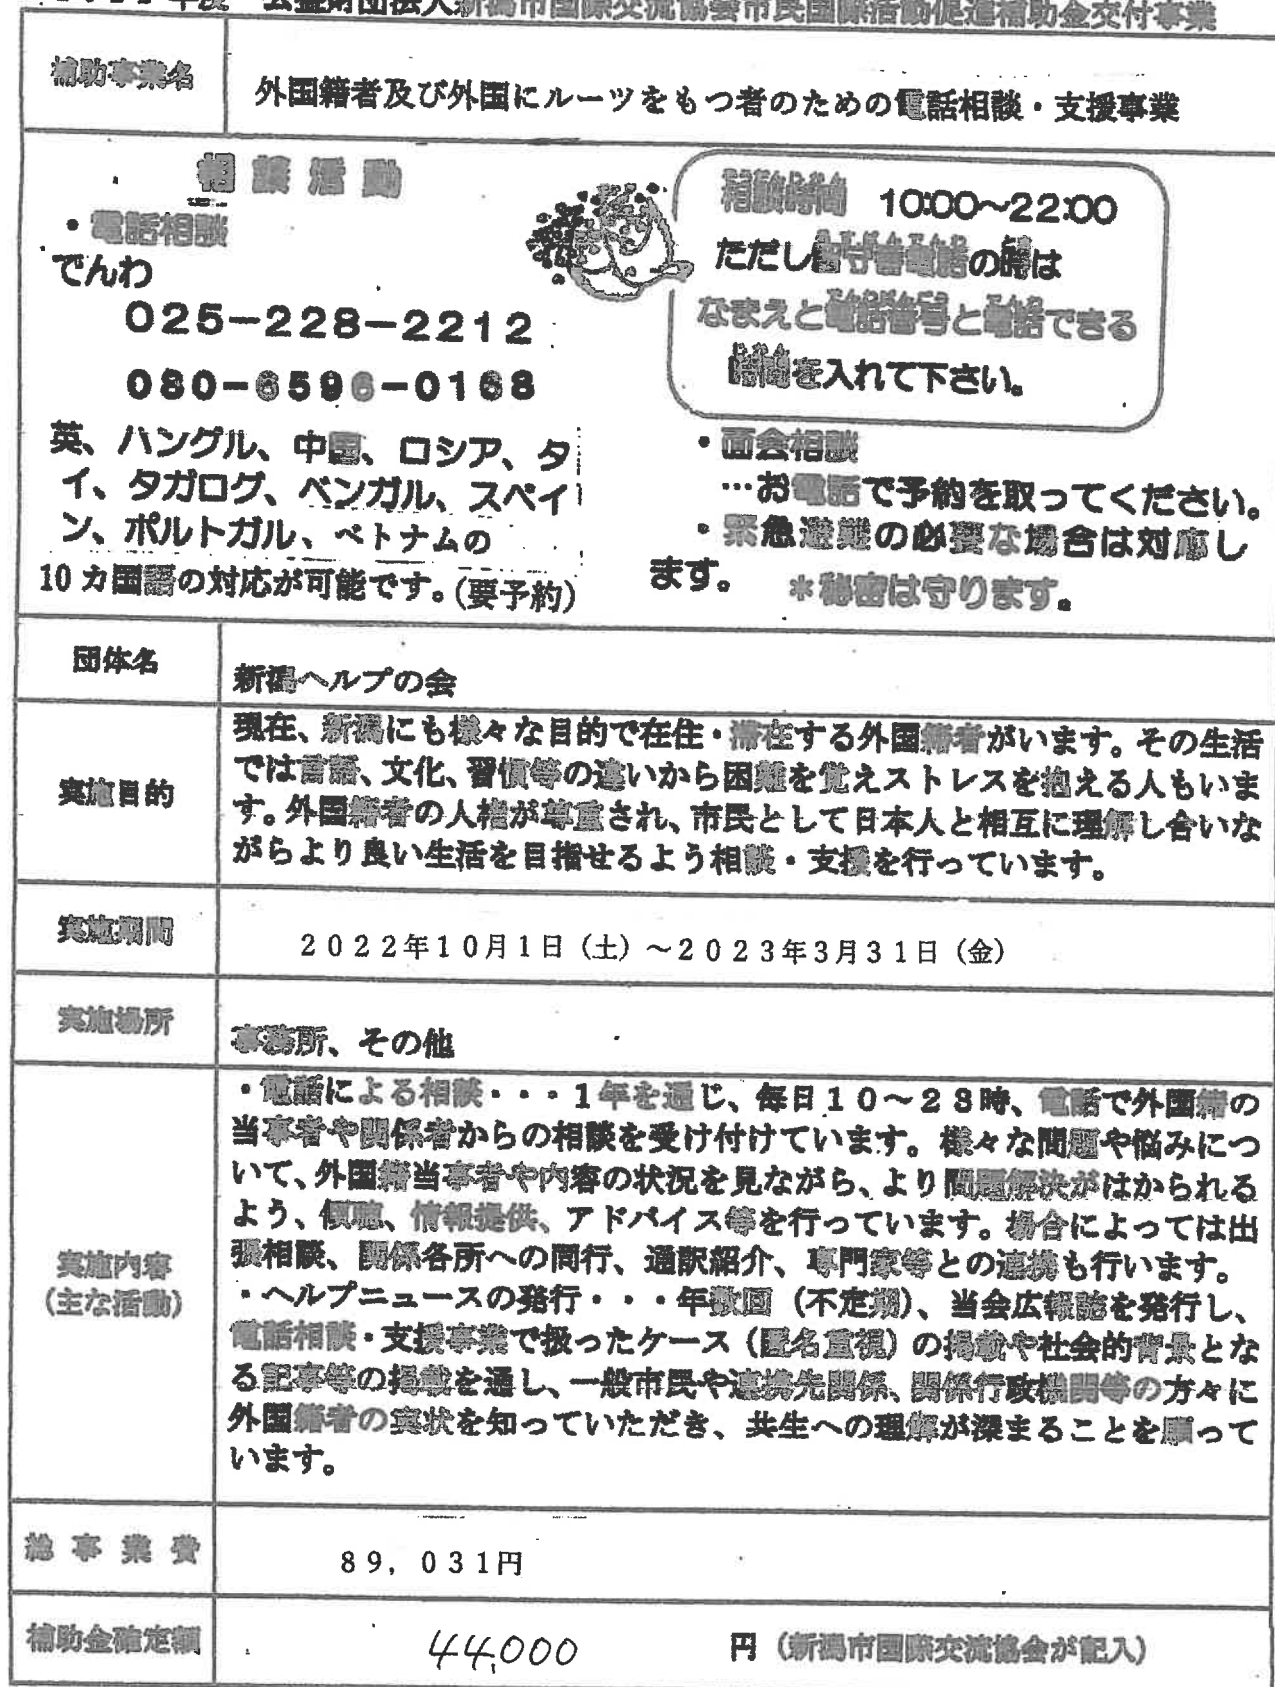 年度 公益財団法人新潟市国際交流協会市民国際活動促進補助金交付事業
補助事業名
外国籍者及び外国にルーツをもつ者のための電話相談・支援事業
相談活動
・電話相談
でんわ
025-228-2212
080-6596-0168
英、ハングル、中国、ロシア、タ
イ、タガログ、ベンガル、スペイ
ン、ポルトガル、ベトナムの
10カ国語の対応が可能です。(要予約)
相談時間 10:00～22:00
ただし留守番電話の時は
なまえと電話番号と電話できる
時間を入れて下さい。
・面会相談
…お電話で予約を取ってください。
・緊急避難の必要な場合は対応し
ます。 *秘密は守ります。
団体名
新潟ヘルプの会
実施目的
現在、新潟にも様々な目的で在住・滞在する外国籍者がいます。その生活
では言語、文化、習慣等の違いから困難を覚えストレスを抱える人もいま
す。外国籍者の人権が尊重され、市民として日本人と相互に理解し合いな
がらより良い生活を目指せるよう相談・支援を行っています。
実施期間
2022年10月1日（土）～2023年3月31日（金）
実施場所
事務所、その他
実施内容
(主な活動)
・電話による相談・・・1年を通じ、毎日10～23時、電話で外国籍の
当事者や関係者からの相談を受け付けています。様々な問題や悩みにつ
いて、外国籍当事者や内容の状況を見ながら、より問題解決がはかられる
よう、傾聴、情報提供、アドバイス等を行っています。場合によっては出
張相談、関係各所への同行、通訳紹介、専門家等との連携も行います。
・ヘルプニュースの発行・・・年数回（不定期）、当会広報誌を発行し、
電話相談・支援事業で扱ったケース（匿名重視）の掲載や社会的背景とな
る記事等の掲載を通し、一般市民や連携先関係、関係行政機関等の方々に
外国籍者の実状を知っていただき、共生への理解が深まることを願って
います。
総事業費
89,031円
補助金確定額
44,000 円（新潟市国際交流協会が記入）